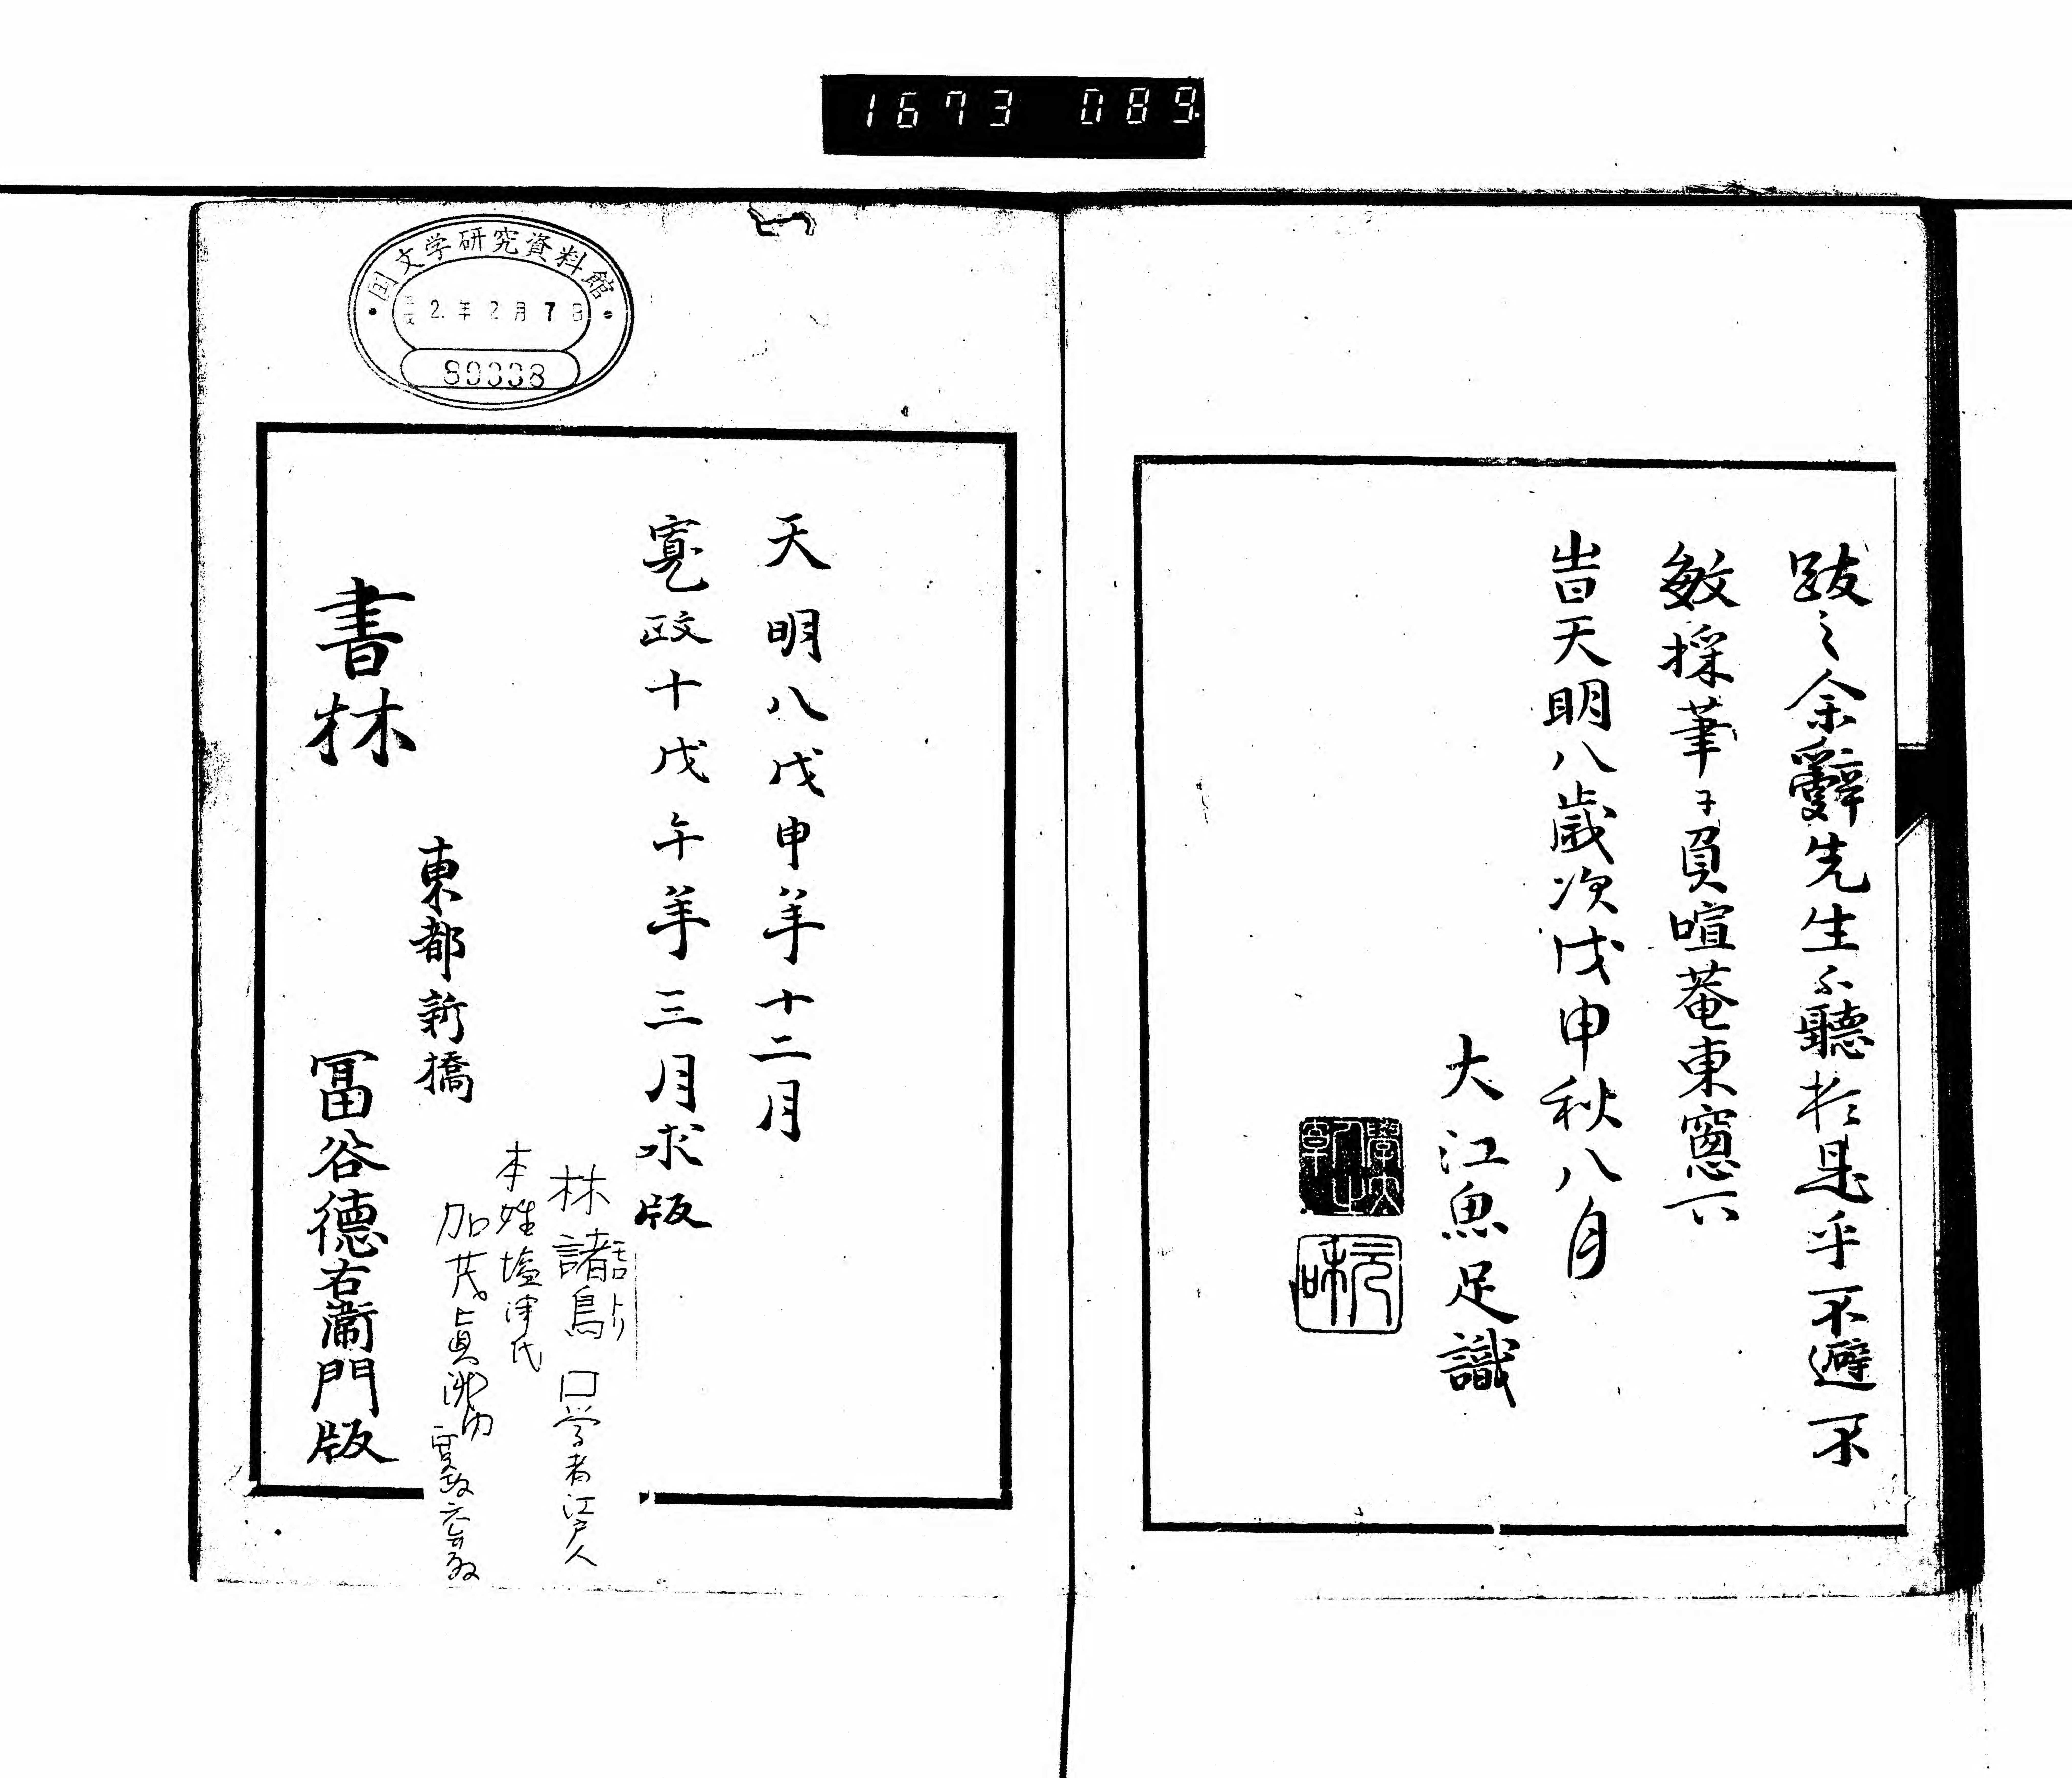 1673 089.
跋之余辭先生不聽於是乎不避不
敏採筆于負喧菴東窻下
旹天明八歲次戊申秋八月
大江魚足識
国文学研究資料館
平成2.年2月7日
80338
天明八戊申年十二月
寛政十戊午年三月求版
林諸鳥 モロトリ 口学者江戸人
本姓塩津氏
加茂真渕門 寛政六年歿
東都新橋
書林 冨谷德右衞門版